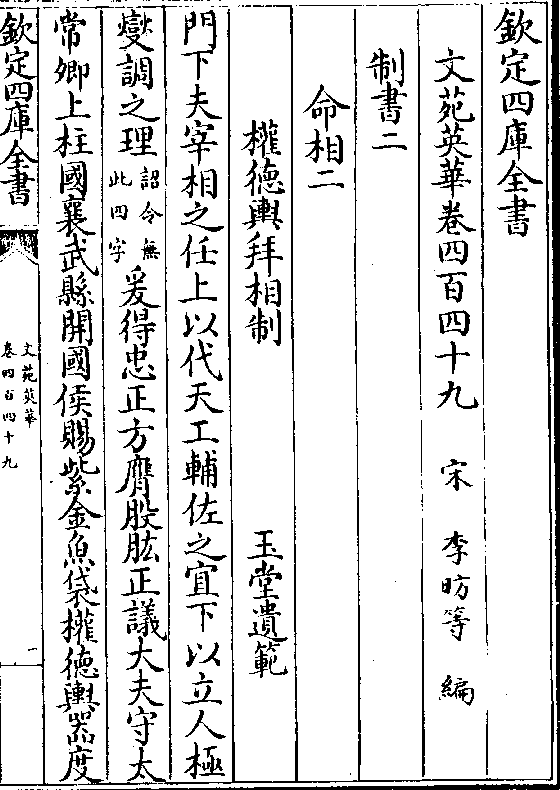 欽定四庫全書
文苑英華卷四百四十九 宋 李昉等 編
制書二
命相二
權徳輿拜相制 玉堂遺範
門下夫宰相之任上以代天工輔佐之宜下以立人極
燮調之理詔令無此四字爰得忠正方膺股肱正議大夫守太
常卿上柱國襄武縣開國侯賜紫金魚袋權徳輿器度
欽定四庫全書
文苑英華
卷四百四十九
一